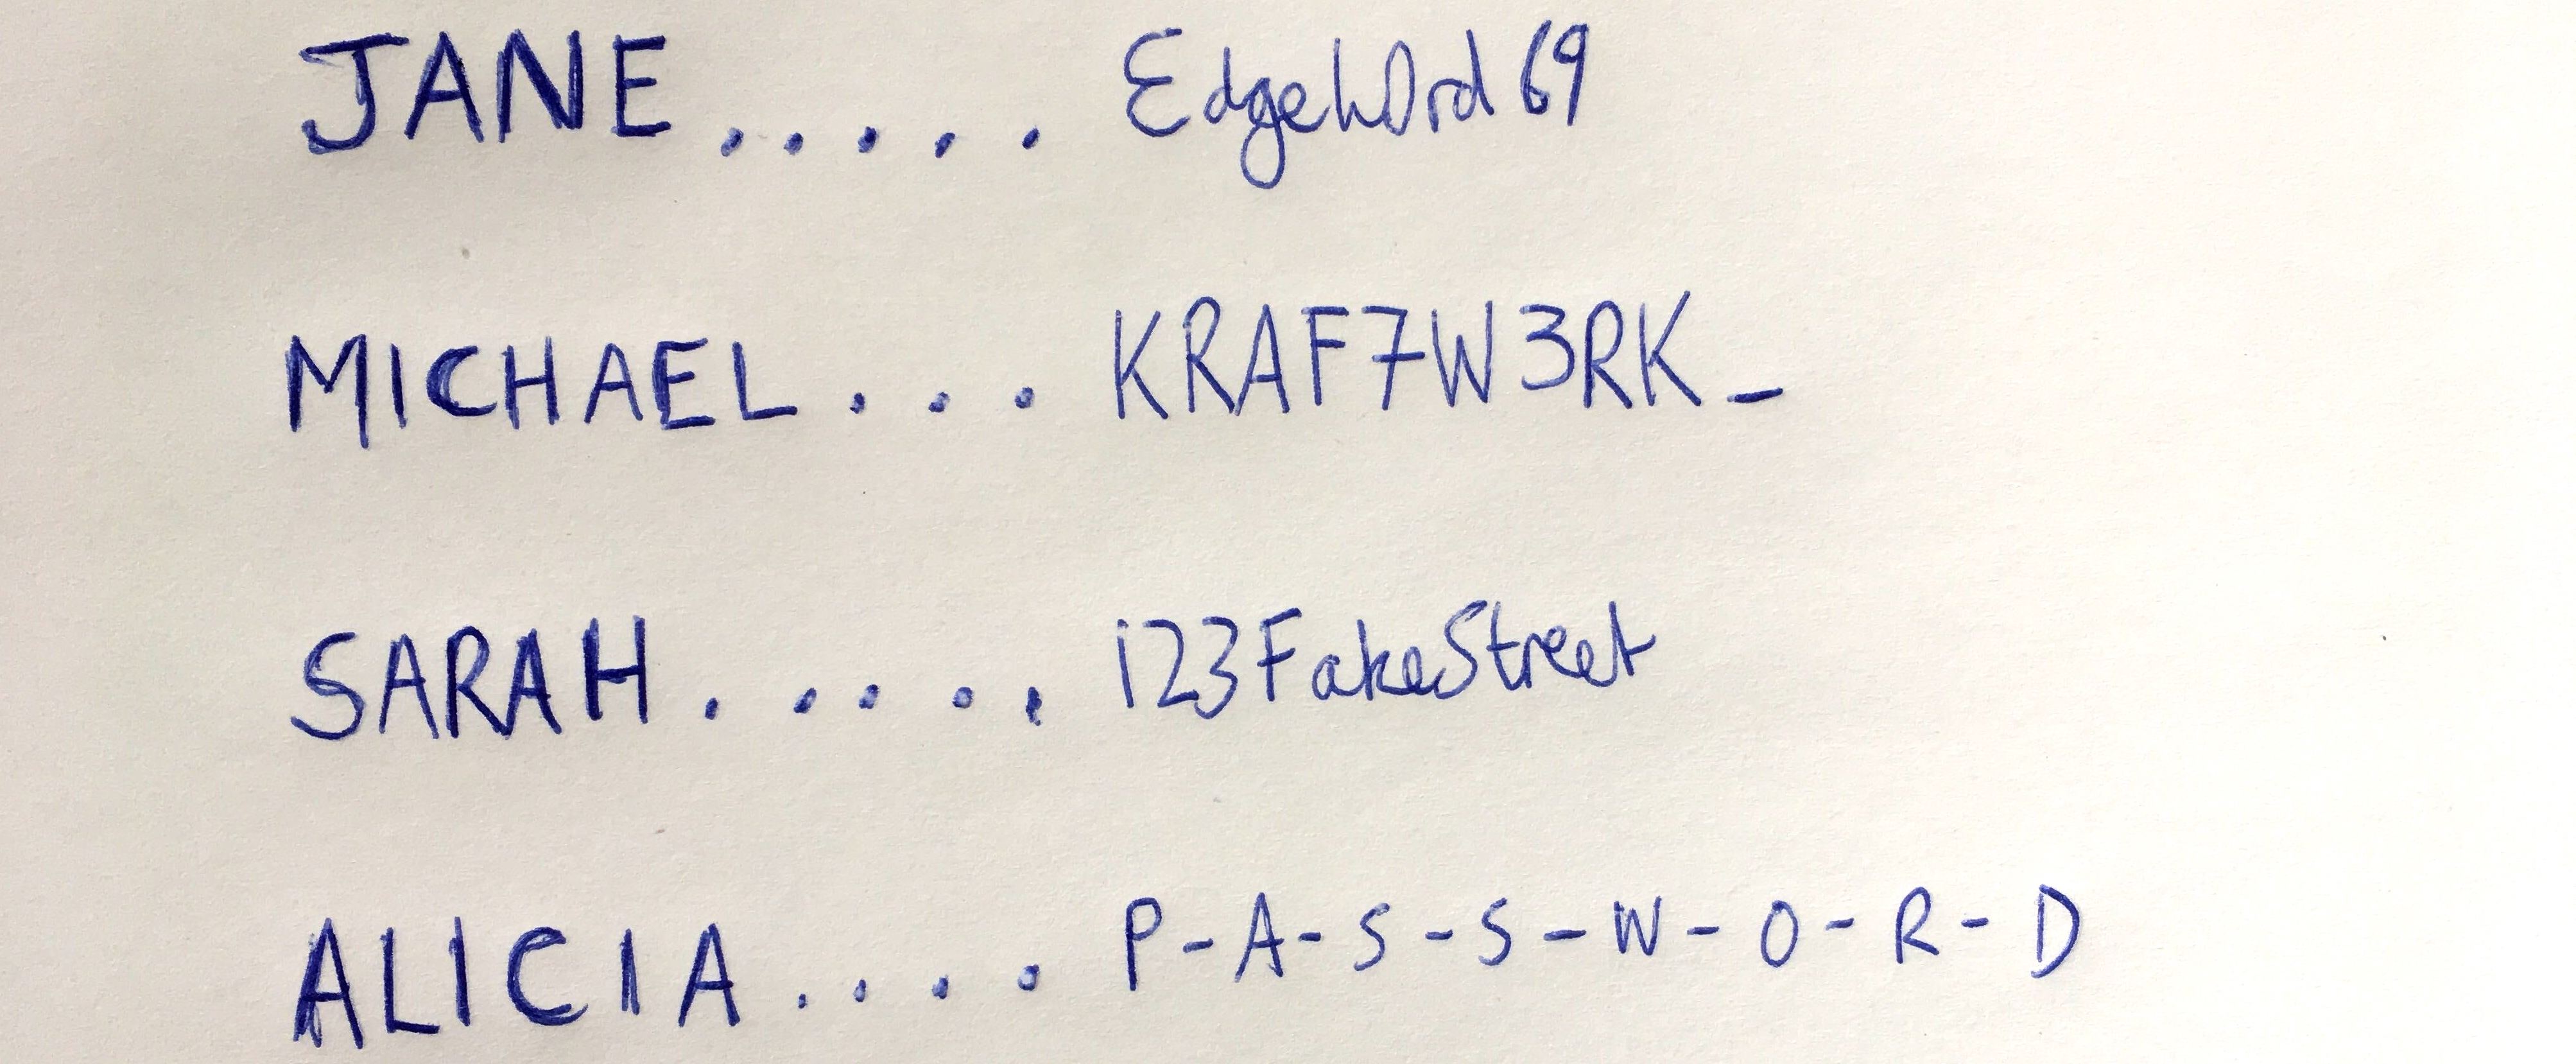 JANE..... Edgeh0rd69
MICHAEL... KRAF7W3RK_
SARAH..... i23FakeStreet
ALICIA.... P-A-S-S-W-O-R-D